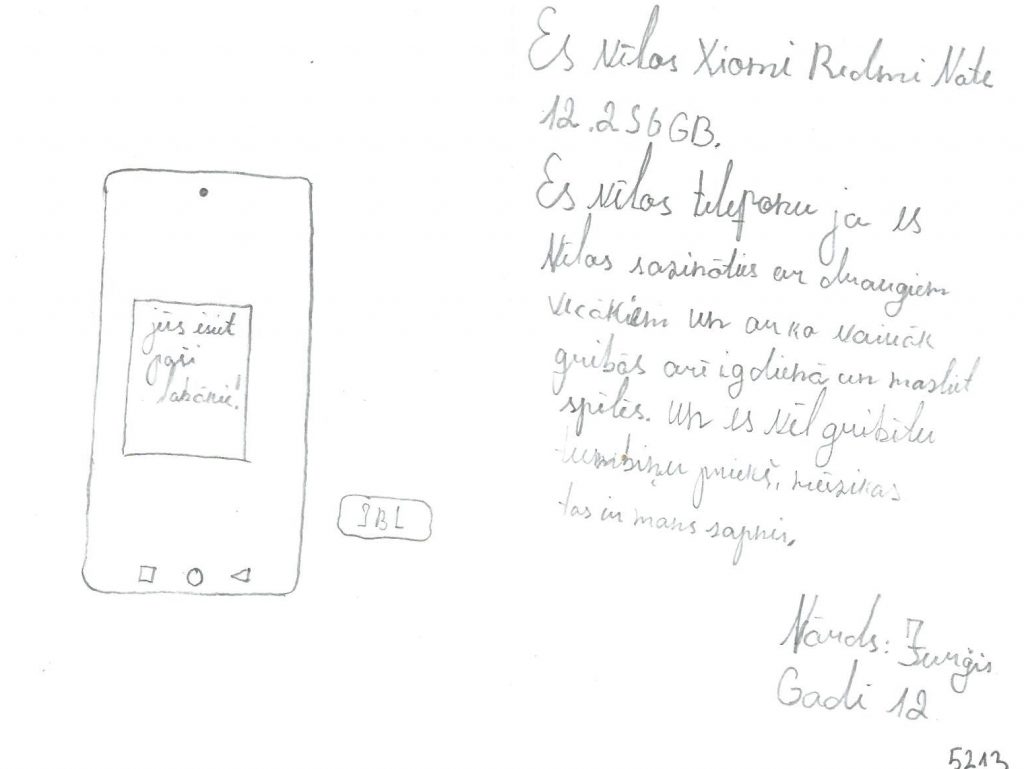 jūs esiet
paši
labākie!
JBL
Es vēlos Xiomi Redmi Note
12.256GB.
Es vēlos telefonu ja es
Vēlos sazināties ar draugiem
vecākiem un ar ko vairāk
gribās arī igdienā un mazliet
spēlēs. Un es vēl gribētu
tumbiņu priekš, mūzikas
tas ir mans sapnis.
Vārds: Jurģis
Gadi 12
5213